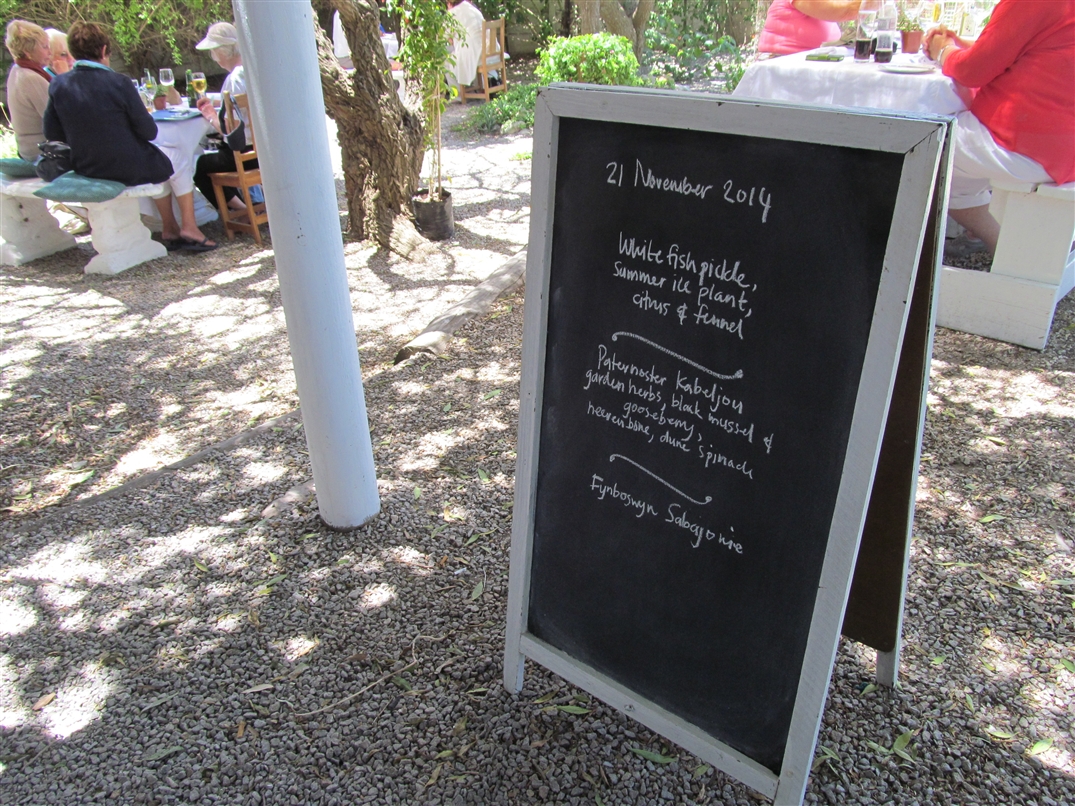 21 November 2014
White fish pickle,
summer ice plant,
citrus & fennel
Paternoster Kabeljou
garden herbs, black mussel &
gooseberry,
heerenbone, dune spinach
Fynboswyn Sabayonne